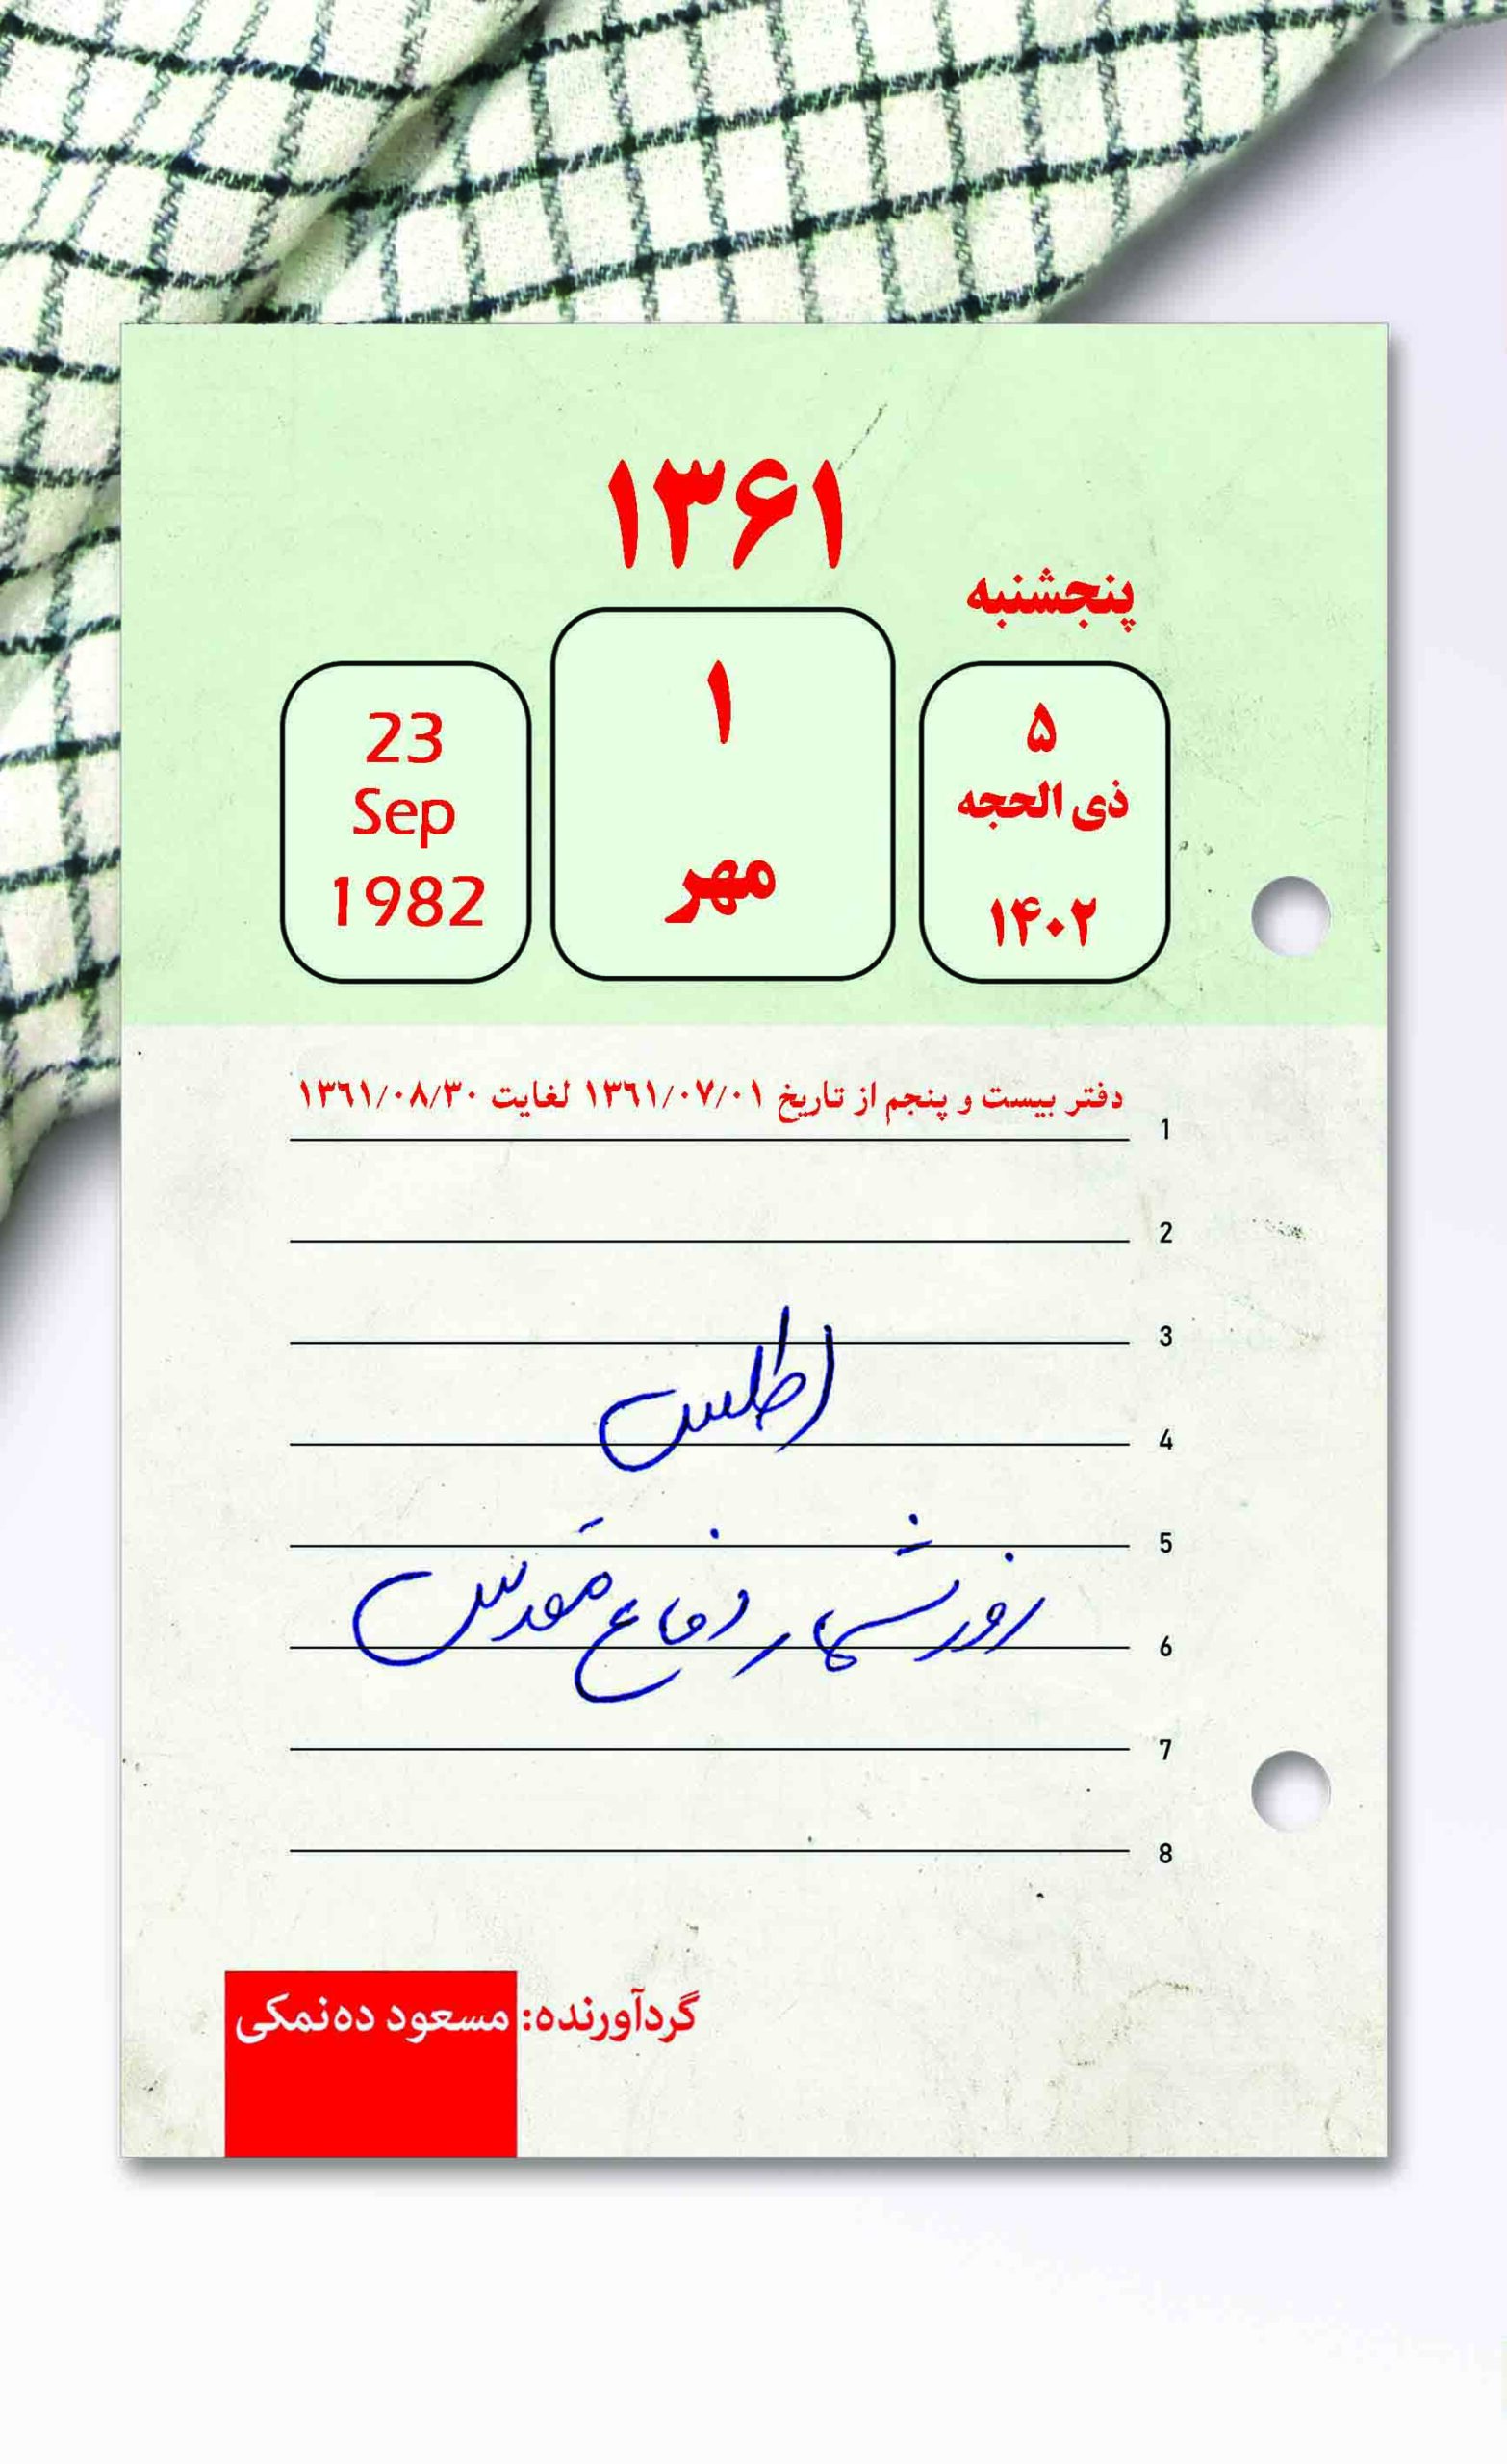 ۱۳۶۱
پنجشنبه
۵
ذی الحجه
۱۴۰۲
۱
مهر
23
Sep
1982
دفتر بیست و پنجم از تاریخ ۱۳٦۱/۰۷/۰۱ لغایت ۱۳٦۱/۰۸/۳۰
1
2
3
اطلس
4
5
روزشمار دفاع مقدس
6
7
8
گردآورنده: مسعود ده‌نمکی